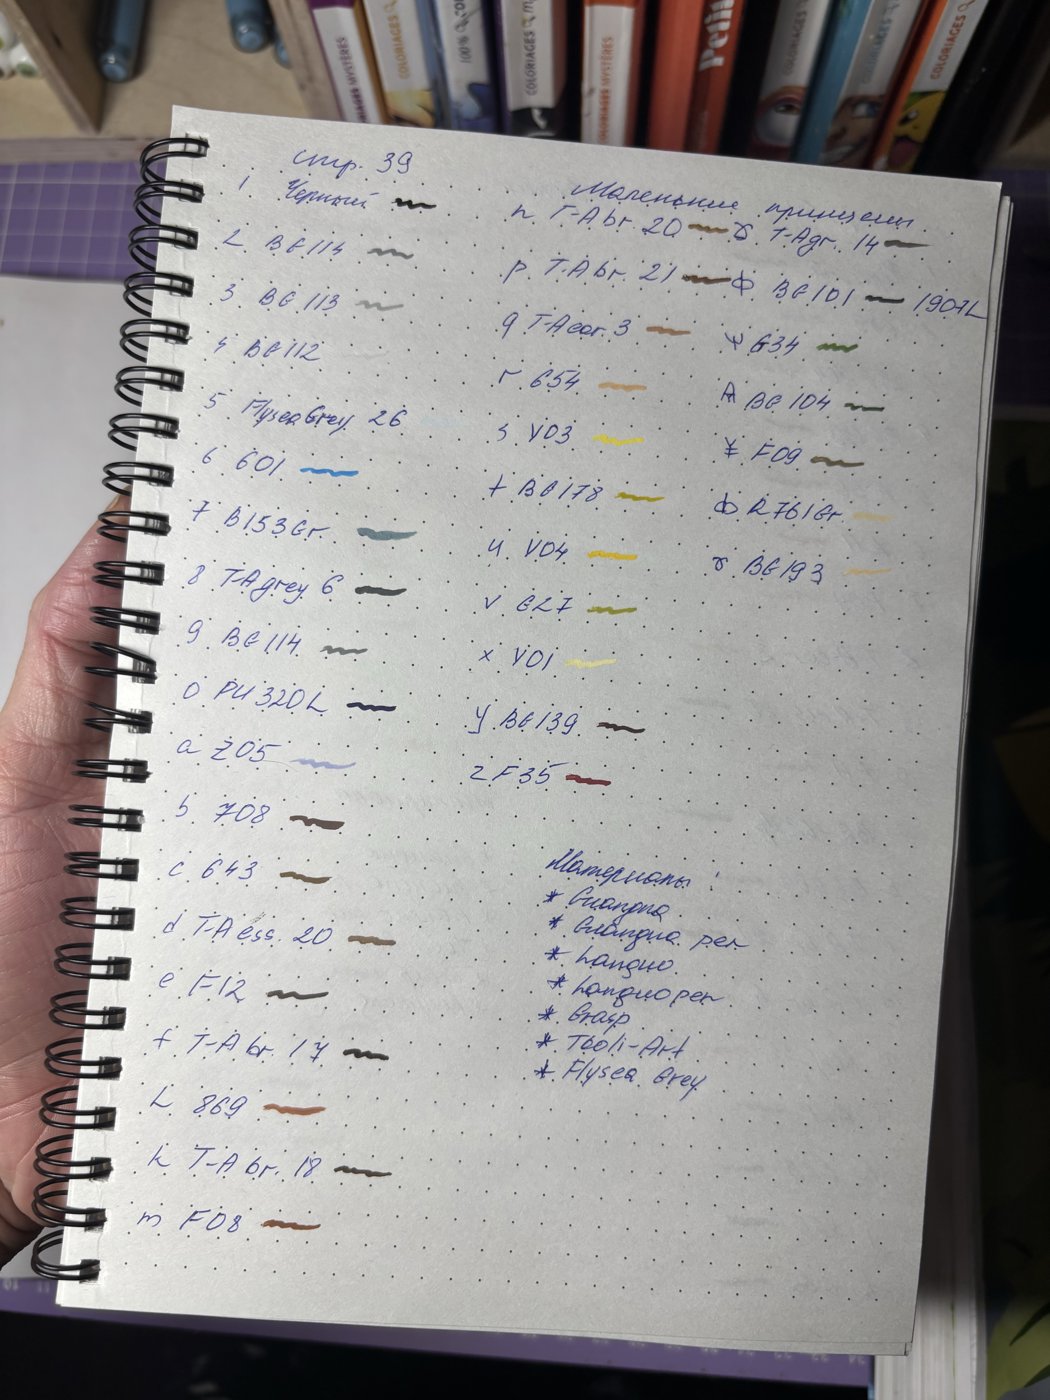 COLORIAGES MYSTÈRES
COLORIAGES
100% CO
COLORIAGES
COLORIAGES MYSTÈRES
Petit
COLORIAGES
COLORIAGES
COLORIAGES
стр. 39
Маленькие принцессы
1 Черный
2 BG114
3 BG113
4 BG112
5 Flysea Grey 26
6 601
7 B153Gr.
8 T-A grey 6
9 BG114
0 PU320L
a Z05
b 708
c 643
d T-A ess. 20
e F12
f T-A br. 17
h 869
k T-A br. 18
m F08
n T-A br. 20
p T-A br. 21
q T-A cor. 3
r 654
s V03
t BG178
u V04
v G27
x V01
y BG139
z F35
T-A gr. 14
ф BG101 1907L
G34
A BG104
¥ F09
R761Gr
BG193
Материалы:
* Guangna
* Guangna pen
* Languo
* Languo pen
* Grasp
* Tooli-Art
* Flysea Grey